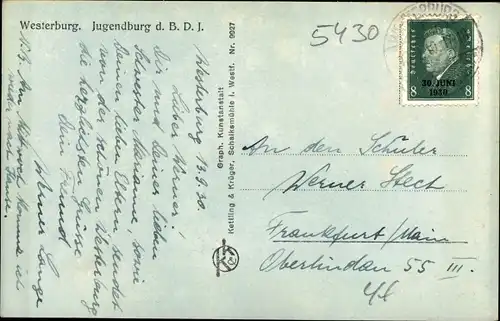 Westerburg. Jugendburg d. B. D. J.
5430
Deutsches Reich
30. JUNI
1930
8 8
Westerburg 13.9.30.
Lieber Werner!
Dir und Deiner lieben
Schwester Marianne, sowie
Deinen lieben Eltern sendet
von der schönen Westerburg
die herzlichsten Grüsse
Dein Freund
Werner Lange
N.B. Am Mittwoch komme ich
wieder nach Hause.
Graph. Kunstanstalt
Kettling & Krüger, Schalksmühle i. Westf. Nr. 9927
An den Schüler
Werner Stech
Frankfurt/Main
Oberlindau 55 III.